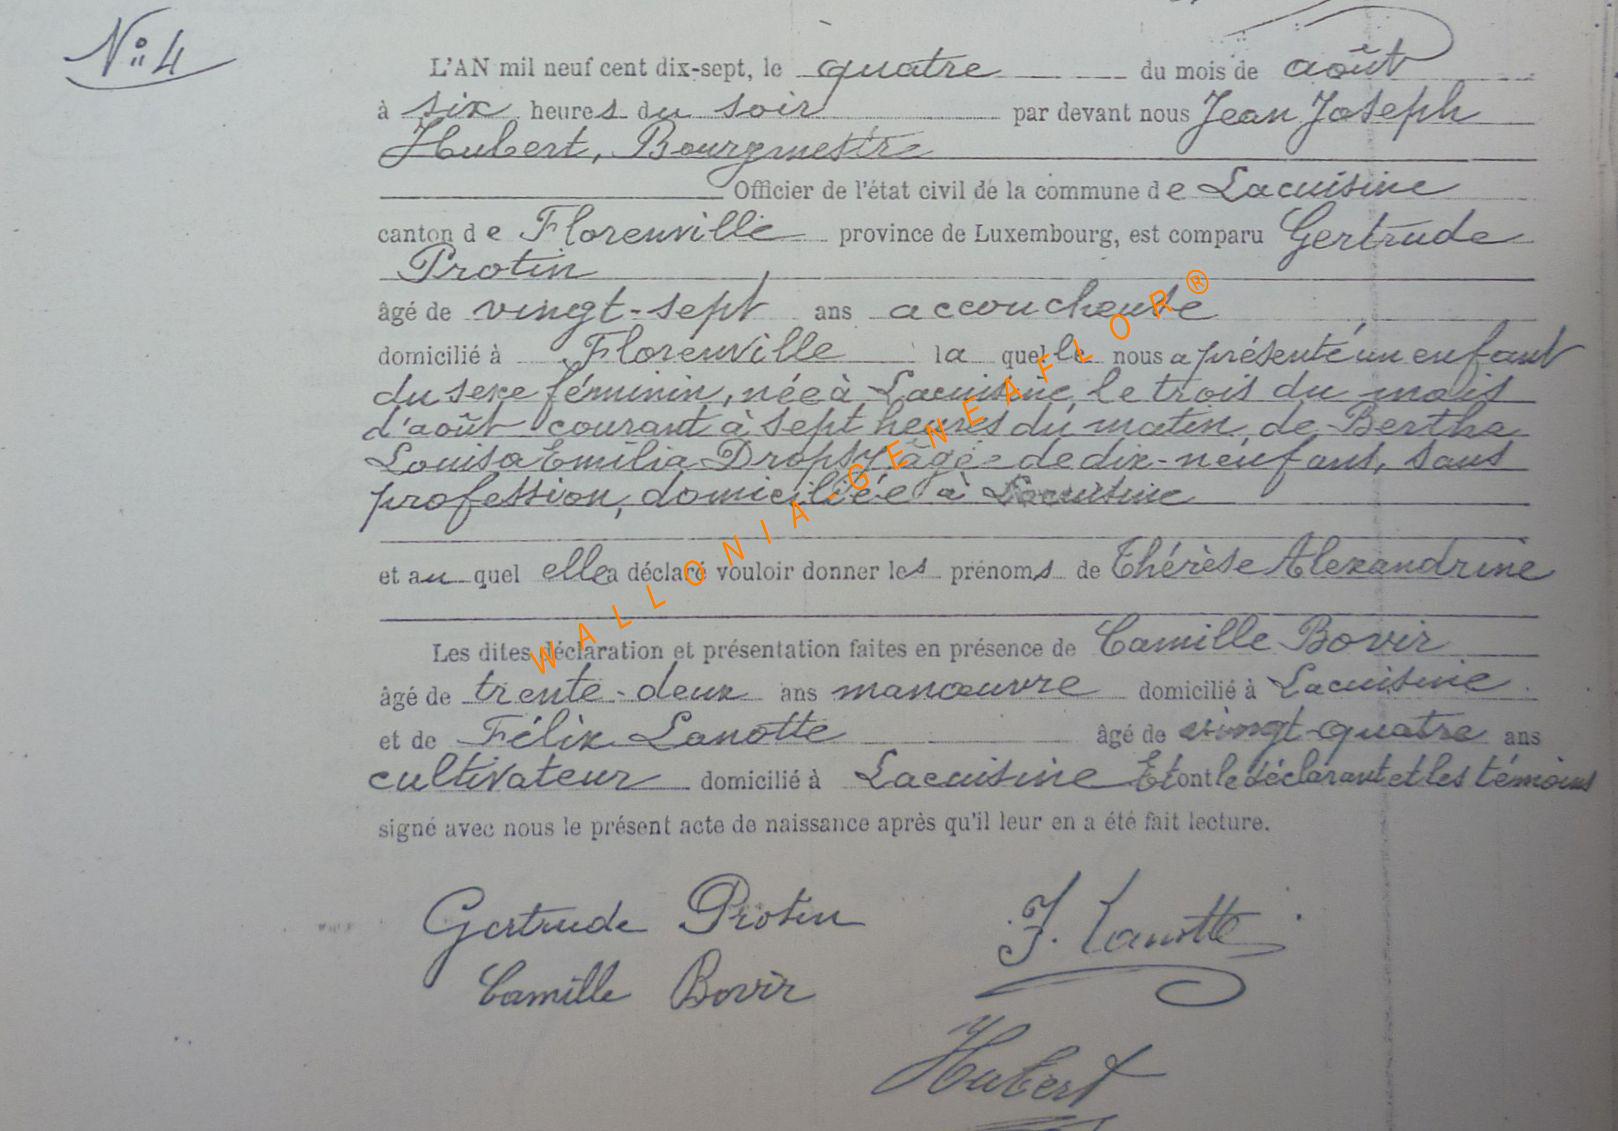 N° 4
L'AN mil neuf cent dix-sept, le quatre du mois de août
à six heures du soir par devant nous Jean Joseph
Hubert, Bourgmestre
Officier de l'état civil de la commune de Lacuisine
canton de Florenville province de Luxembourg, est comparu Gertrude
Protin
âgé de vingt-sept ans accoucheuse
domicilié à Florenville la quelle nous a présenté un enfant
du sexe féminin, née à Lacuisine le trois du mois
d'août courant à sept heures du matin, de Bertha
Louisa Emilia Dropsy âgée de dix-neuf ans, sans
profession, domiciliée à Lacuisine
et au quel elle a déclaré vouloir donner les prénoms de Thérèse Alexandrine
Les dites déclaration et présentation faites en présence de Camille Bovir
âgé de trente-deux ans manœuvre domicilié à Lacuisine
et de Félix Lanotte âgé de vingt-quatre ans
cultivateur domicilié à Lacuisine Et ont le déclarant et les témoins
signé avec nous le présent acte de naissance après qu'il leur en a été fait lecture.
Gertrude Protin F. Lanotte
Camille Bovir
Hubert
WALLONIA.GENEAFLOR®